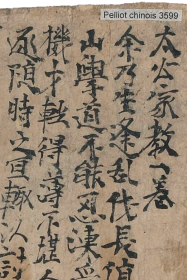 Pelliot chinois 3599
太公家教一卷
余乃生逢乱代長
山學道不能忍凍受
才軽得薄不堪人
隨時之宜輒以